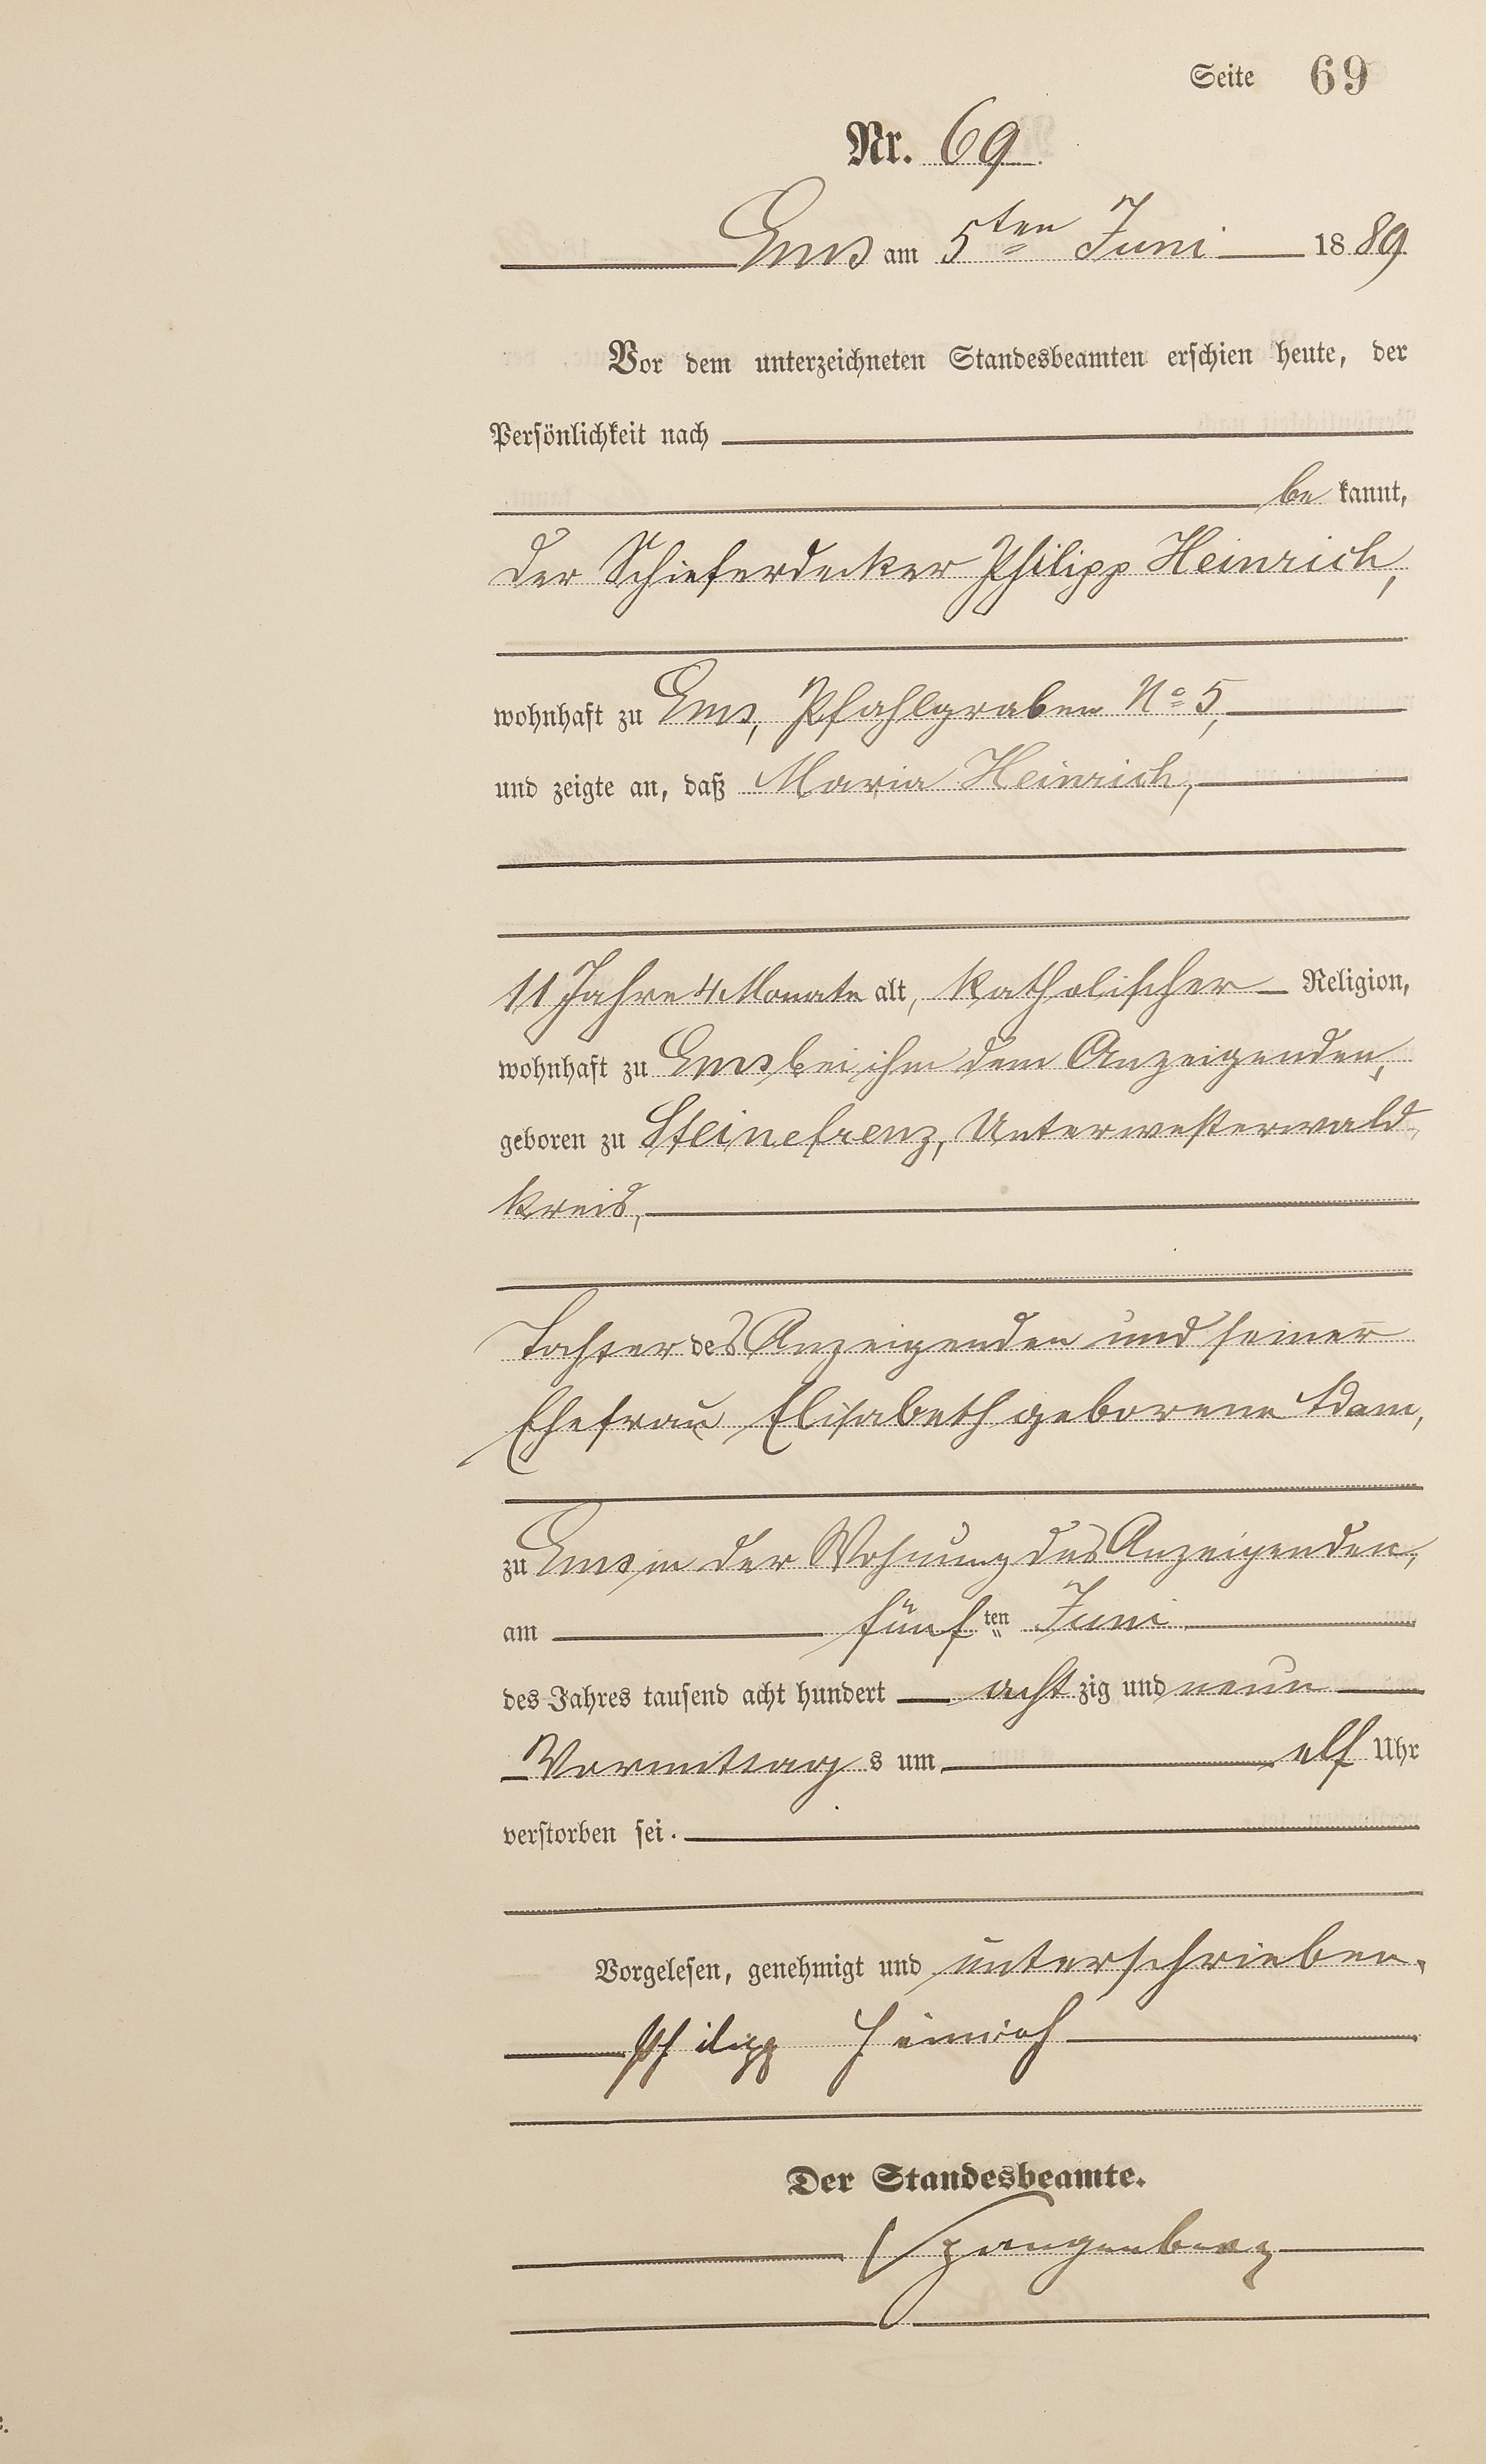 Seite 69
Nr. 69
Ems am 5ten Juni 1889
Vor dem unterzeichneten Standesbeamten erschien heute, der
Persönlichkeit nach
be kannt,
der Schieferdecker Philipp Heinrich,
wohnhaft zu Ems, Pfahlgraben No 5,
und zeigte an, daß Maria Heinrich,
11 Jahre 4 Monate alt, katholischer Religion,
wohnhaft zu Ems bei ihm dem Anzeigenden,
geboren zu Steinefrenz, Unterwesterwald
kreis,
Tochter des Anzeigenden und seiner
Ehefrau Elisabeth geborene Adam,
zu Ems in der Wohnung des Anzeigenden,
am fünf ten Juni
des Jahres tausend acht hundert acht zig und neun
Vormittag s um elf Uhr
verstorben sei.
Vorgelesen, genehmigt und unterschrieben.
Philipp Heinrich
Der Standesbeamte.
Spangenberg